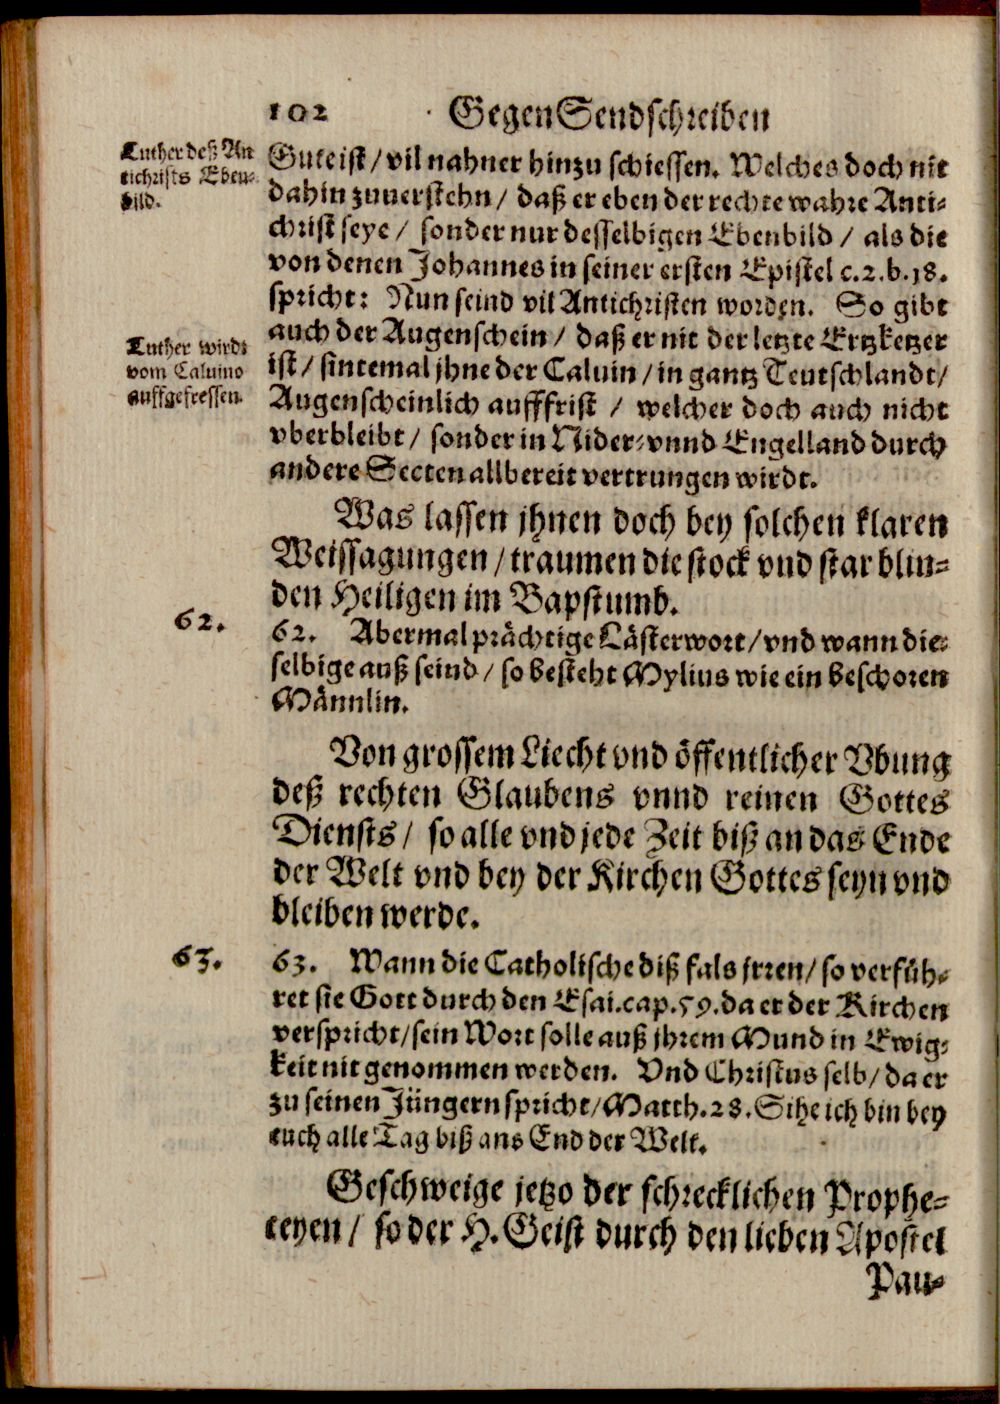 102 GegenSendschreiben
Luther deß An
tichrists Eben-
bild.
Guteist / vil nahner hinzu schiessen. Welches doch nit
dahin zuuerstehn / daß er eben der rechte wahre Anti-
christ seye / sonder nur desselbigen Ebenbild / als die
von denen Johannes in seiner ersten Epistel c.2.b.18.
spricht: Nun seind vil Antichristen worden. So gibt
auch der Augenschein / daß er nit der letzte Ertzketzer
Luther wirdt
vom Caluino
auffgefressen.
ist / sintemal jhne der Caluin / in gantz Teutschlandt /
Augenscheinlich aufffrist / welcher doch auch nicht
vberbleibt / sonder in Nider- vnnd Engelland durch
andere Secten allbereit vertrungen wirdt.
Was lassen jhnen doch bey solchen klaren
Weissagungen / traumen die stock vnd star blin-
den Heiligen im Bapstumb.
62.
62. Abermal prächtige Lästerwort / vnd wann die-
selbige auß seind / so besteht Mylius wie ein beschoren
Männlin.
Von grossem Liecht vnd öffentlicher Vbung
deß rechten Glaubens vnnd reinen Gottes
Diensts / so alle vnd jede Zeit biß an das Ende
der Welt vnd bey der Kirchen Gottes seyn vnd
bleiben werde.
63.
63. Wann die Catholische diß fals jrren / so verfüh-
ret sie Gott durch den Esai. cap. 59. da er der Kirchen
verspricht / sein Wort solle auß jhrem Mund in Ewig-
keit nit genommen werden. Vnd Christus selb / da er
zu seinen Jüngern spricht / Matth. 28. Sihe ich bin bey
euch alle Tag biß ans End der Welt.
Geschweige jetzo der schrecklichen Prophe-
teyen / so der H. Geist durch den lieben Apostel
Pau-